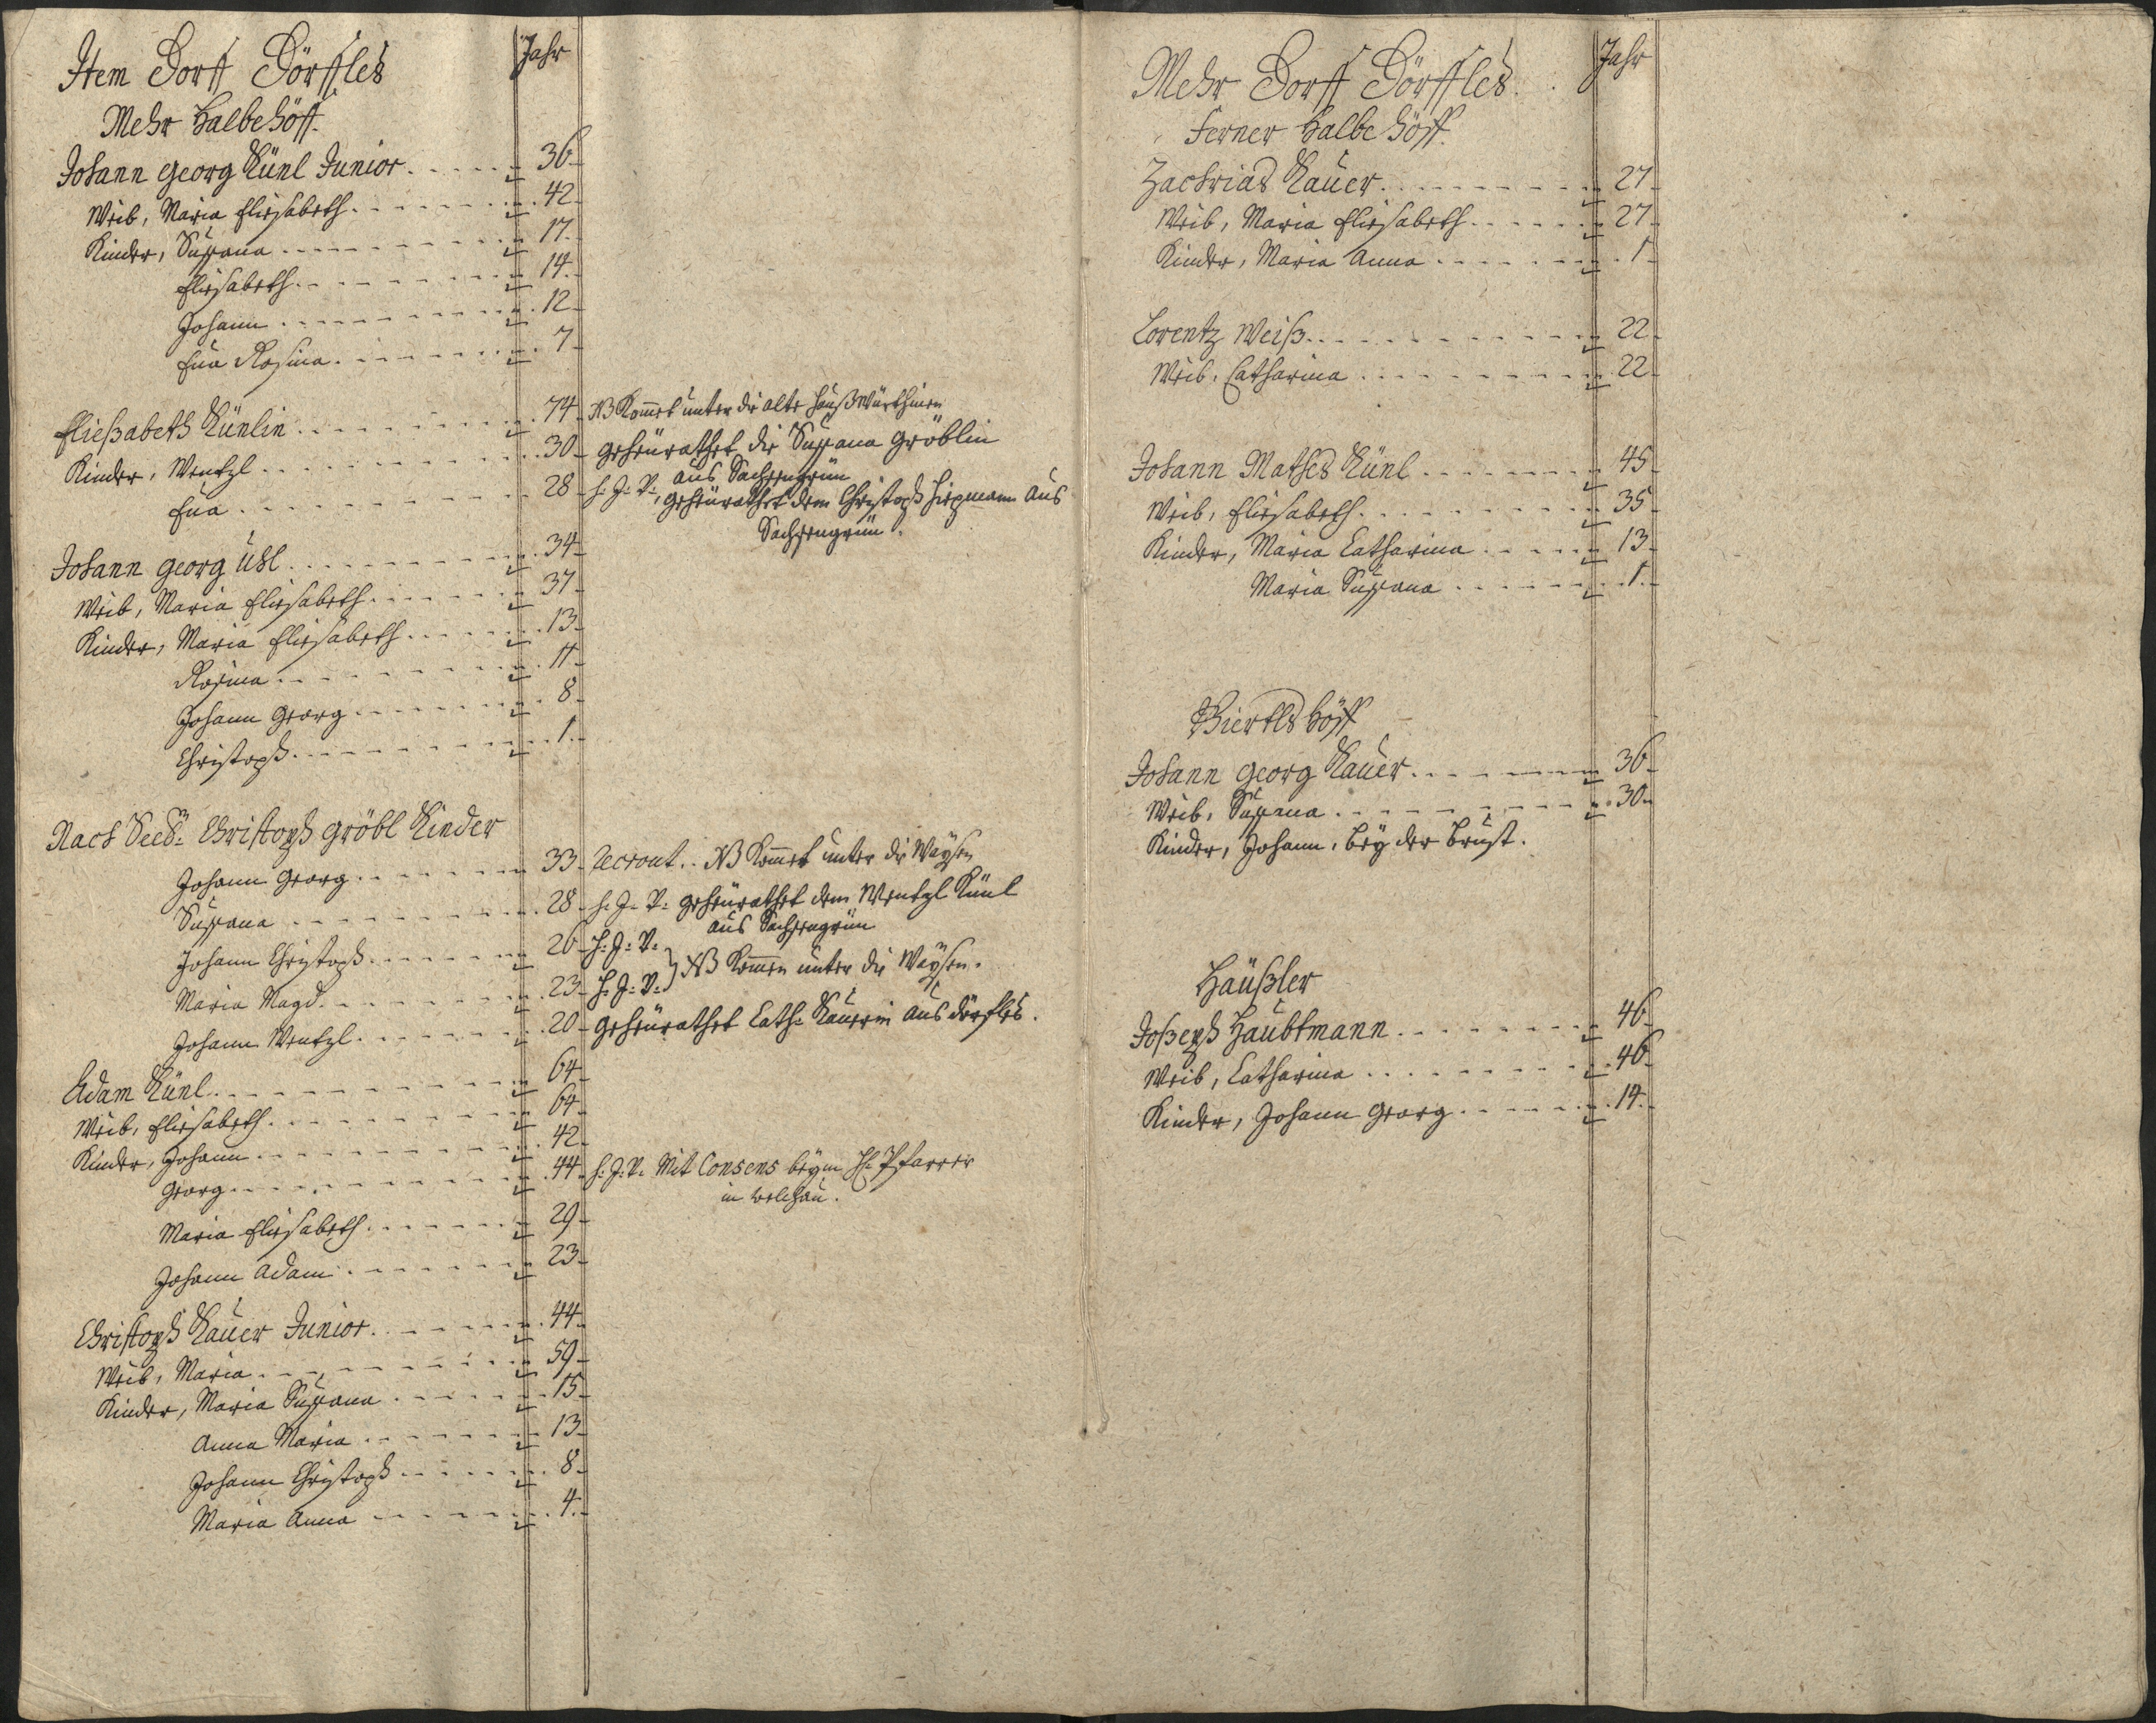 Item Dorff Dörffles
Jahr
Mehr Halbe Höff.
Johann Georg Künl Junior 36
Weib, Maria Eliesabeth 42
Kinder, Susana 17
Eliesabeth 14
Johann 12
Eva Rosina 7
Eließabeth Künlin 74 NB Komet unter die alte Haußwürthinen
Kinder, Wentzl 30 geheürathet die Susana Gröblin
aus Sachsengrün
Eva 28 h: J: V: geheürathet dem Christoph Hiepmann aus
Sachsengrün.
Johann Georg Uhl 34
Weib, Maria Eliesabeth 37
Kinder, Maria Eliesabeth 13
Rosina 11
Johann Georg 8
Christoph 1
Nach Seel: Christoph Gröbl Kinder
Johann Georg 33 Recrout.. NB Komet unter die Waysen
Susana 28 h: J: V: geheürathet dem Wentzl Künl
aus Sachsengrün
Johann Christoph 26 H: J: V:
Maria Magd. 23 H: J: V: } NB Komen unter die Waysen.
Johann Wentzl 20 geheürathet Cath: Kauerin aus dörfles.
Adam Künl 64
Weib, Eliesabeth 64
Kinder, Johann 42
Georg 44 h: J: V. Mit Consens beym H: Pfarrer
in welchau.
Maria Eliesabeth 29
Johann Adam 23
Christoph Kauer Junior 44
Weib, Maria 59
Kinder, Maria Susana 15
Anna Maria 13
Johann Christoph 8
Maria Anna 4
Mehr Dorff Dörffles
Jahr
Ferner Halbe Höff.
Zachrias Kauer 27
Weib, Maria Eliesabeth 27
Kinder, Maria Anna 1
Lorentz Weiß 22
Weib, Catharina 22
Johann Mathes Künl 45
Weib, Eliesabeth 35
Kinder, Maria Catharina 13
Maria Susana 1
Viertls Höff
Johann Georg Kauer 36
Weib, Susana 30
Kinder, Johann, bey der brust.
Häußler
Joßeph Haubtmann 46
Weib, Catharina 46
Kinder, Johann Georg 14